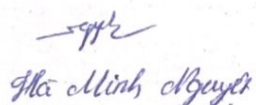 Hà Minh Nguyệt